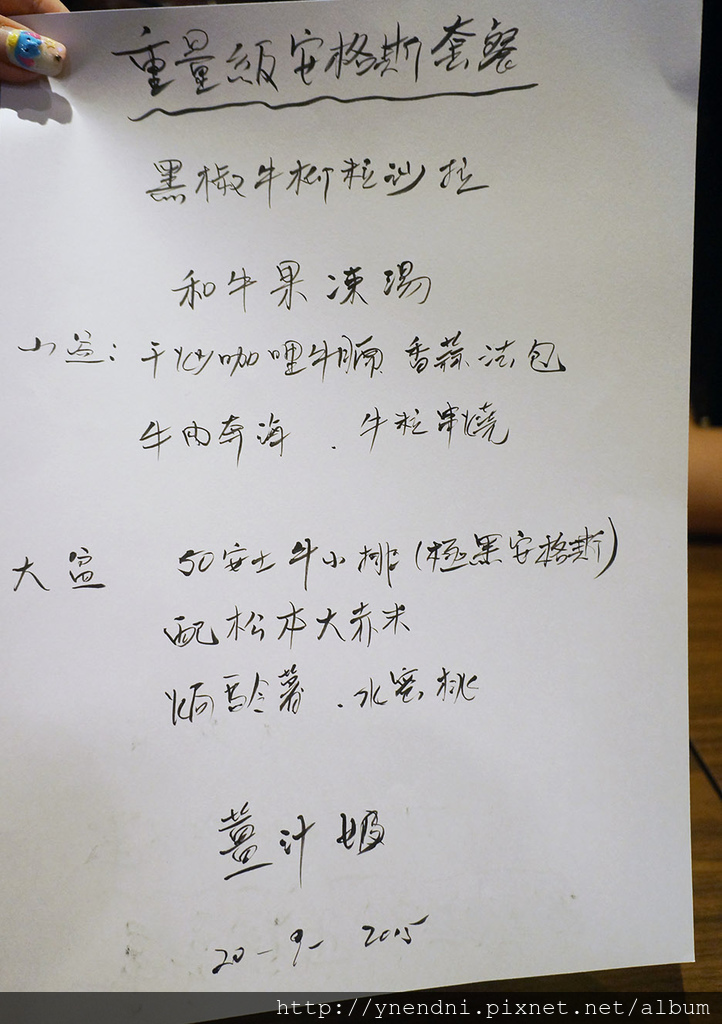 重量級安格斯套餐
黑椒牛柳粒沙拉
和牛果凍湯
小盆: 干炒咖哩牛腩 香蒜法包
牛肉奔海 . 牛粒串燒
大盆 50安士牛小排 (極黑安格斯)
配松本大赤米
焗馬鈴薯 . 水蜜桃
薑汁
20-9-2015
http://ynendni.pixnet.net/album